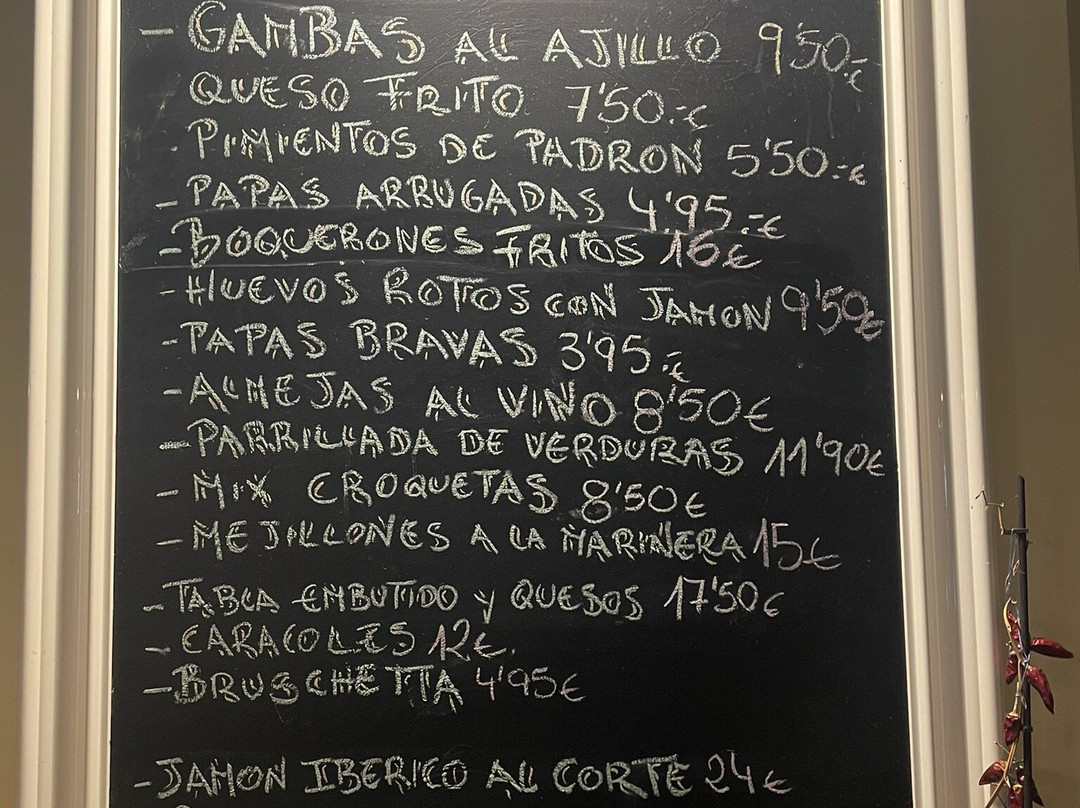 - GAMBAS AL AJILLO 9'50.-€
QUESO FRITO 7'50.-€
- PIMIENTOS DE PADRON 5'50.-€
- PAPAS ARRUGADAS 4'95.-€
- BOQUERONES FRITOS 16€
- HUEVOS ROTOS CON JAMON 9'50€
- PAPAS BRAVAS 3'95.-€
- ALMEJAS AL VINO 8'50€
- PARRILLADA DE VERDURAS 11'90€
- MIX CROQUETAS 8'50€
- MEJILLONES A LA MARINERA 15€
- TABLA EMBUTIDO y QUESOS 17'50€
- CARACOLES 12€.
- BRUSCHETTA 4'95€
- JAMON IBERICO AL CORTE 24€